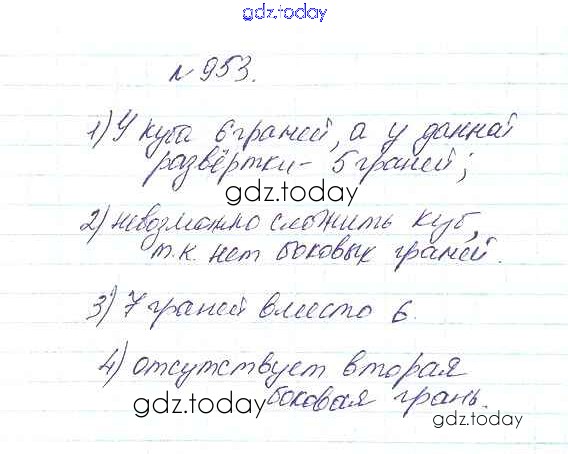 gdz.today
№ 953.
1) У куба 6 граней, а у данной
развёртки - 5 граней;
gdz.today
2) невозможно сложить куб,
т.к. нет боковых граней.
3) 7 граней вместо 6.
4) отсутствует вторая
боковая грань.
gdz.today
gdz.today